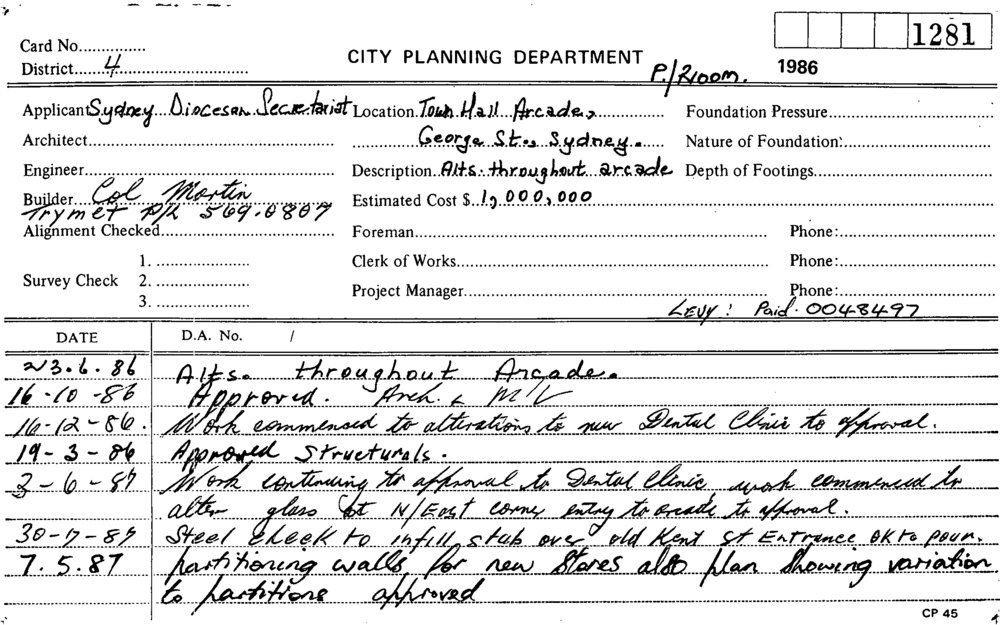 1281
Card No...............
CITY PLANNING DEPARTMENT
District.......4................................
P./Room.
1986
Applicant Sydney Diocesan Secretariat Location Town Hall Arcade, Foundation Pressure..............................
Architect............................................................ George St., Sydney. Nature of Foundation:..............................
Engineer............................................................ Description Alts. throughout arcade Depth of Footings..............................
Builder Col Martin Estimated Cost $ 1,000,000
Trymet P/L 569.0807
Alignment Checked.............................. Foreman............................................................ Phone:..............................
1. .................... Clerk of Works............................................................ Phone:..............................
Survey Check 2. ....................
3. .................... Project Manager............................................................ Phone:..............................
LEVY: Paid. 0048497
DATE D.A. No. /
23.6.86 Alts. throughout Arcade.
16-10-86 Approved. Arch. &
16-12-86. Work commenced to alterations to new Dental Clinic to approval.
19-3-86 Approved Structurals.
2-6-87 Work continuing to approval to Dental Clinic work commenced to
alter glass at N/East corner entry to arcade to approval.
30-7-87 Steel check to infill slab over old Kent St Entrance OK to pour.
7.5.87 partitioning walls for new Stores also plan Showing variation
to partitions approved
CP 45